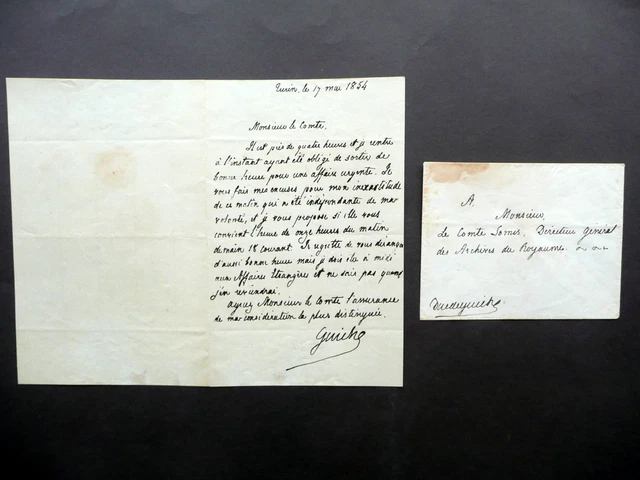 Turin, le 17 mai 1854
Monsieur le Comte,
Il est près de quatre heures et je rentre
à l'instant ayant été obligé de sortir de
bonne heure pour une affaire urgente. Je
vous fais mes excuses pour mon inexactitude
de ce matin qui a été indépendante de ma
volonté, et je vous propose si elle vous
convient l'heure de onze heures du matin
demain 18 courant. Je regrette de vous déranger
d'aussi bonne heure mais je dois être à midi
aux Affaires étrangères et ne sais pas quand
j'en reviendrai.
Agréez Monsieur le Comte l'assurance
de ma considération la plus distinguée.
Guiche
A
Monsieur
Le Comte Directeur général
des Archives du Royaume
Duc de Guiche